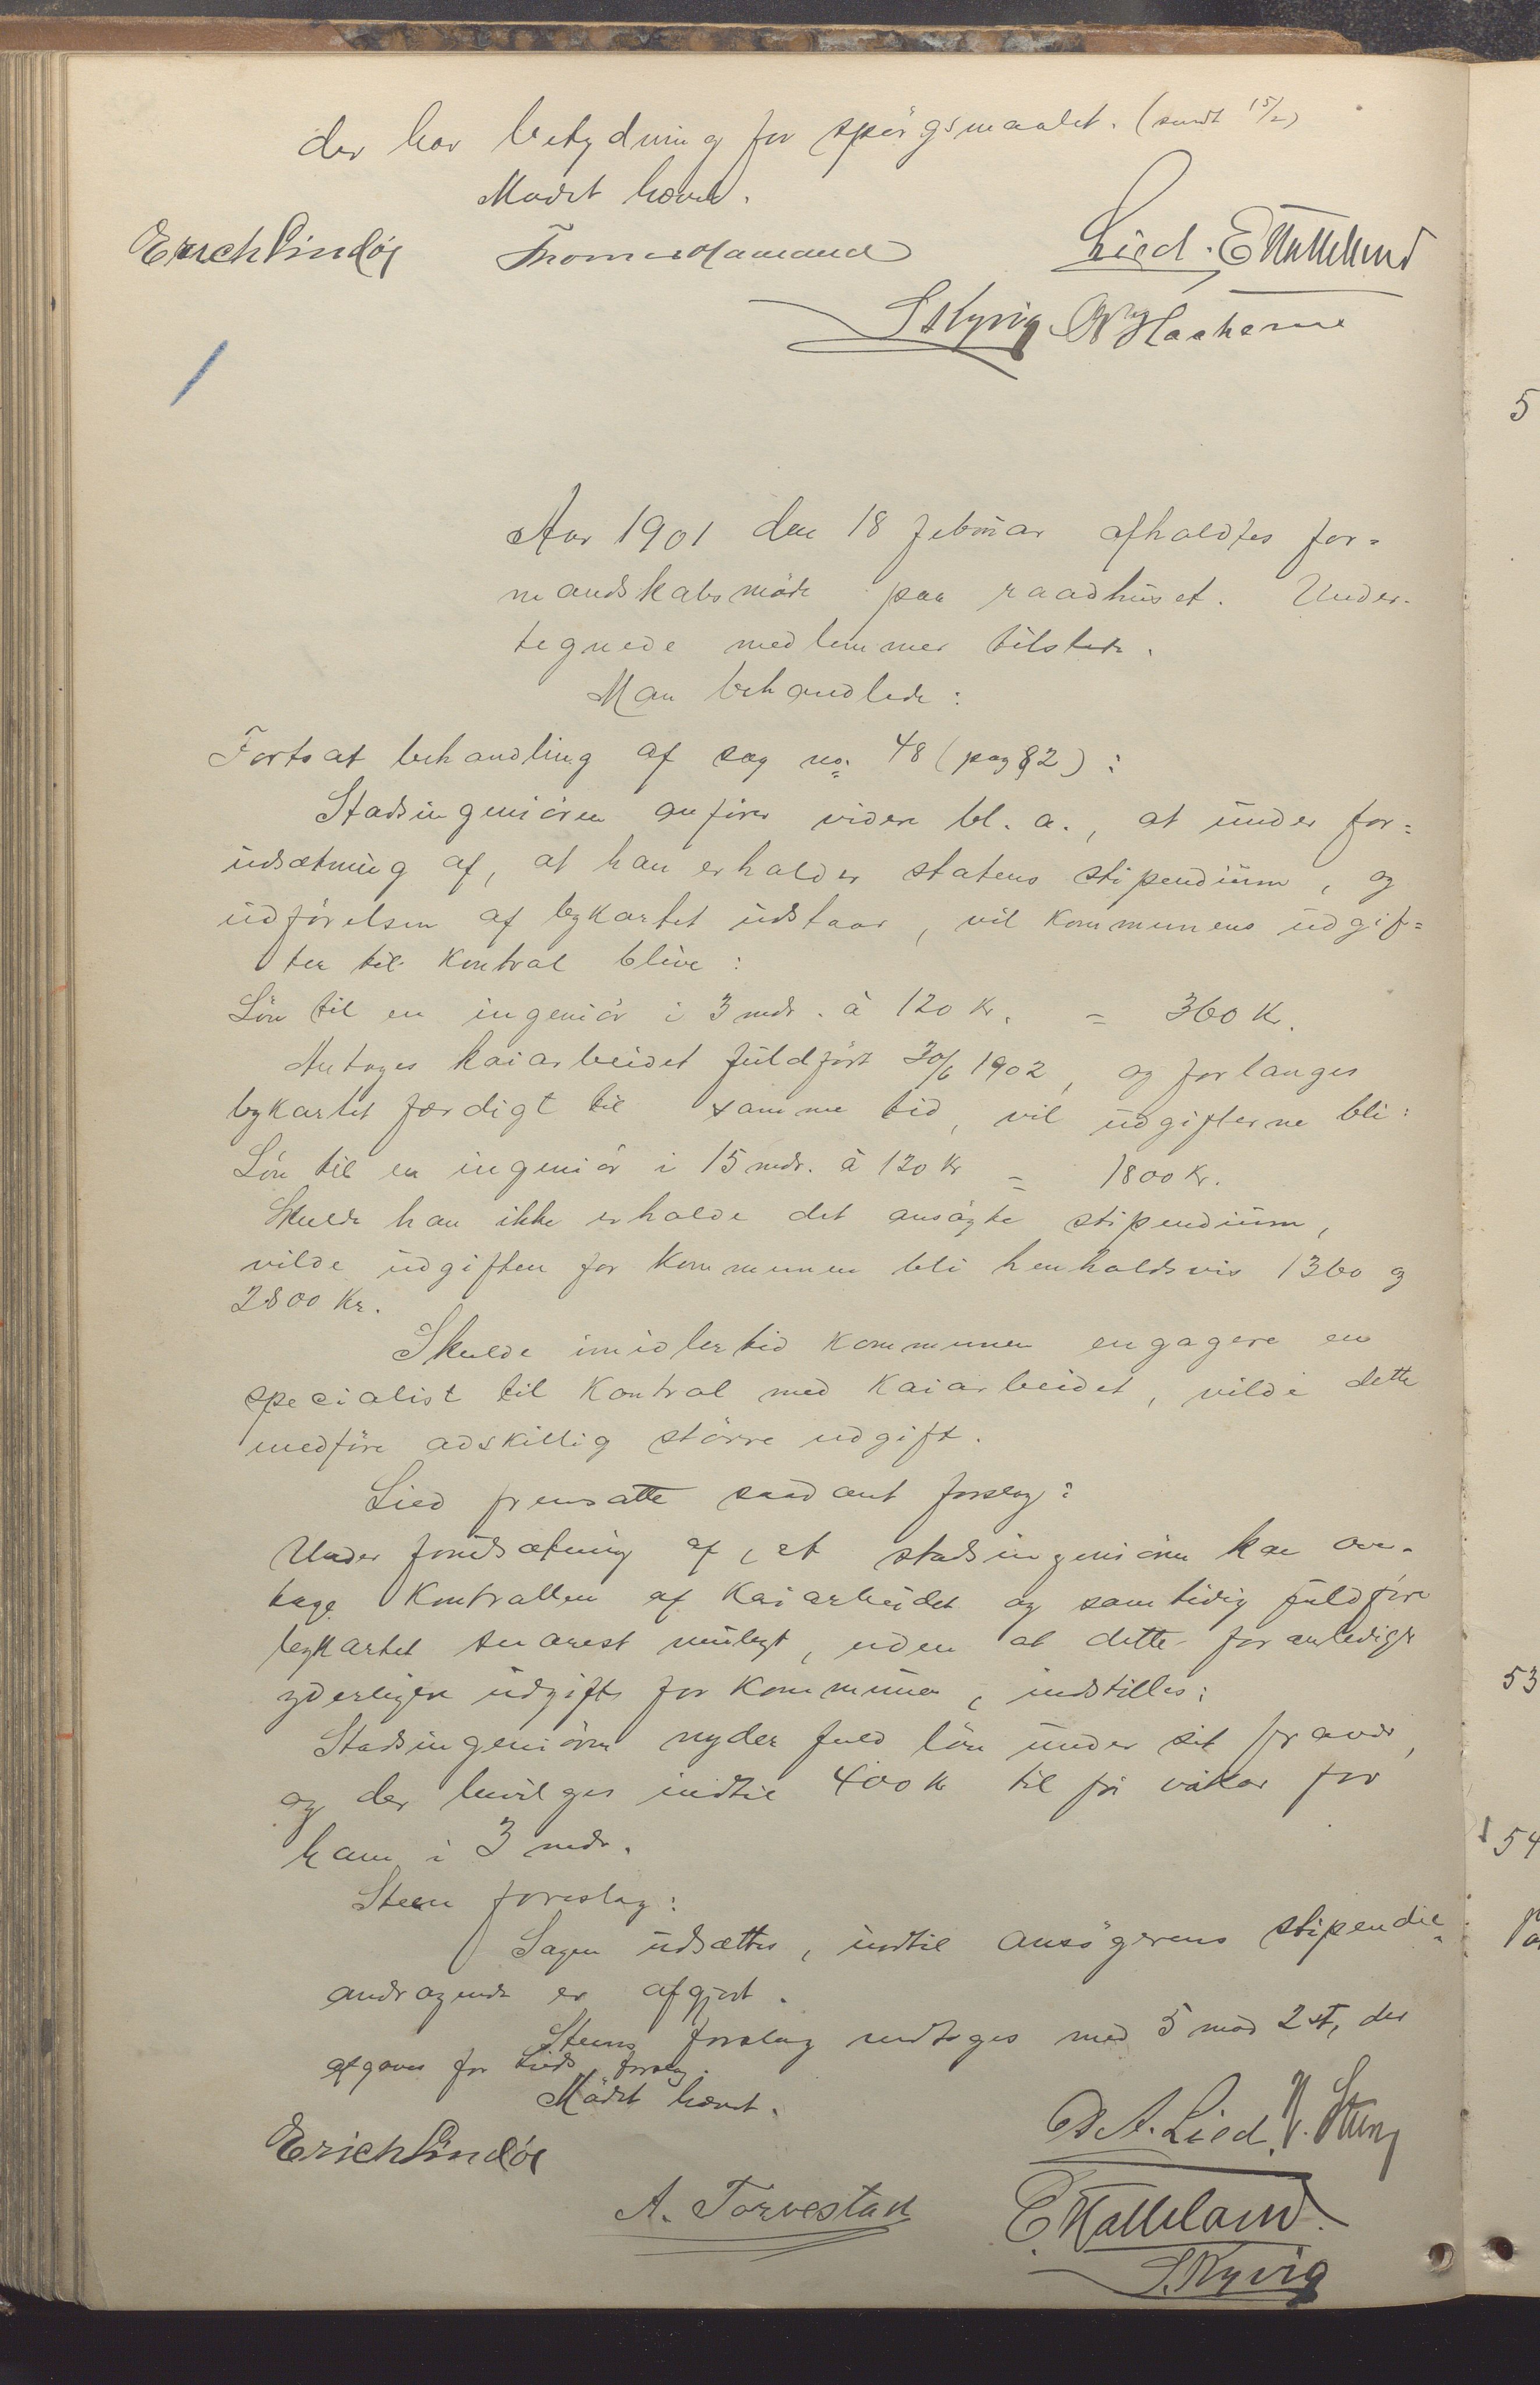 der har betydning for spörgsmaalet. (sendt 15/2)
Mödet hævet.
Erich Lindöe Thomas Hamland Lied. E Hatteland
S Kyvig
Aar 1901 den 18 februar afholdtes for-
mandskabsmöde paa raadhuset. Under-
tegnede medlemmer tilstede.
Man behandlede:
Fortsat behandling af sag no. 48 (pag 82):
Stadsingeniören anförer videre bl. a., at under for-
udsætning af, at han erholder statens stipendium, og
udförelsen af bykartet udstaar, vil kommunens udgif-
ter til kontrol blive:
Lön til en ingeniör i 3 mdr. à 120 Kr. = 360 Kr.
Antages kaiarbeidet fuldfört 30/6 1902, og forlanges
bykartet færdigt til samme tid, vil udgifterne bli:
Lön til en ingeniör i 15 mdr. à 120 Kr = 1800 Kr.
Skulde han ikke erholde det ansögte stipendium,
vilde udgiften for kommunen bli henholdsvis 1360 og
2800 Kr.
Skulde imidlertid kommunen engagere en
specialist til kontrol med kaiarbeidet, vilde dette
medföre adskillig större udgift.
Lied fremsatte saadant forslag:
Under forudsætning af, at stadsingeniören kan over-
tage kontrollen af kaiarbeidet og samtidig fuldföre
bykartet snarest muligt, uden at dette foranlediger
yderligere udgifter for kommunen, indstilles:
Stadsingeniören nyder fuld lön under sit fravær,
og der bevilges indtil 400 Kr til för vikar for
ham i 3 mdr.
Steen foreslog:
Sagen udsættes, indtil ansögerens stipendie-
andragende er afgjort.
Steens forslag vedtoges med 5 mod 2 st, der
afgaves for Lieds forslag.
Mödet hævet.
Erich Lindöe A. Lied. Steen
A. Torvestad E. Hatteland.
S. Kyvig
5
53
54